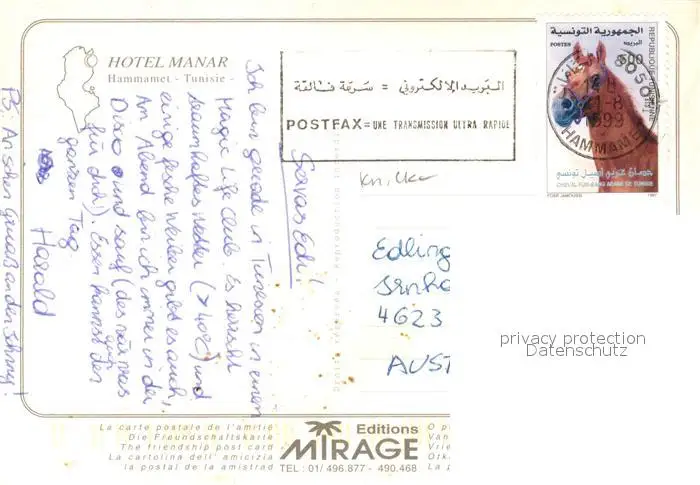 HOTEL MANAR
Hammamet - Tunisie -
البريد الإلكتروني = سرعة فائقة
POSTFAX = UNE TRANSMISSION ULTRA RAPIDE
الجمهورية التونسية
POSTES
البريد
500
REPUBLIQUE TUNISIENNE
8050
21-8
1999
HAMMAMET
حصان عربي أصيل تونسي
CHEVAL PUR-SANG ARABE DE TUNISIE
1997
Servas Edi!
Ich bin gerade in Tunesien in einem
Magic Life Club. Es herrscht
traumhaftes Wetter (>40°C) und
einige fesche Weiber gibt es auch,
Am Abend bin ich immer in der
Disco und sauf (des wär was
für dich). Essen kannst den
ganzen Tag.
Harald
PS: An schen Gruaß an den Johnny!
Edling
4623
AUST
privacy protection
Datenschutz
La carte postale de l'amitié
Die Freundschaftskarte
The friendship post card
La cartolina dell' amicizia
la postal de la amistrad
Editions
MIRAGE
TEL : 01/ 496.877 - 490.468
O p
Van
Vrie
Otk
La p